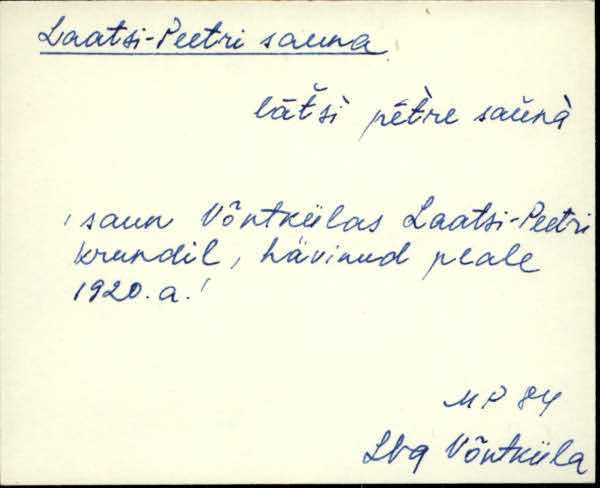 Laatsi-Peetri sauna
lāt̆šì pētre saŭnà
' saun Võntkülas Laatsi-Peetri
krundil, hävinud peale
1920. a. '
MP 84
Lbg Võntküla